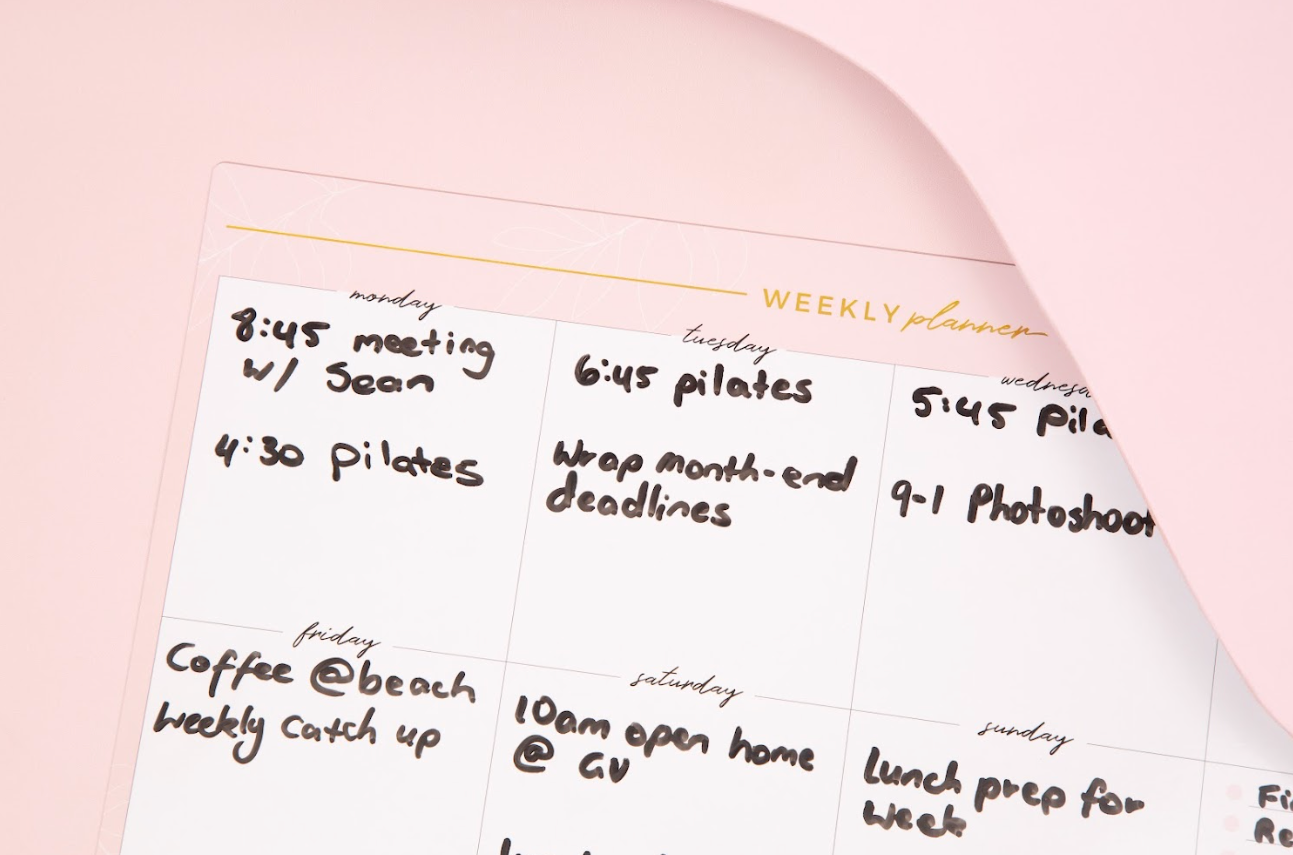 WEEKLY planner
monday
8:45 meeting
w/ Sean
4:30 pilates
tuesday
6:45 pilates
Wrap month-end
deadlines
5:45
9-1 Photoshoot
friday
Coffee @beach
weekly catch up
saturday
10am open home
@ GV
sunday
Lunch prep for
week